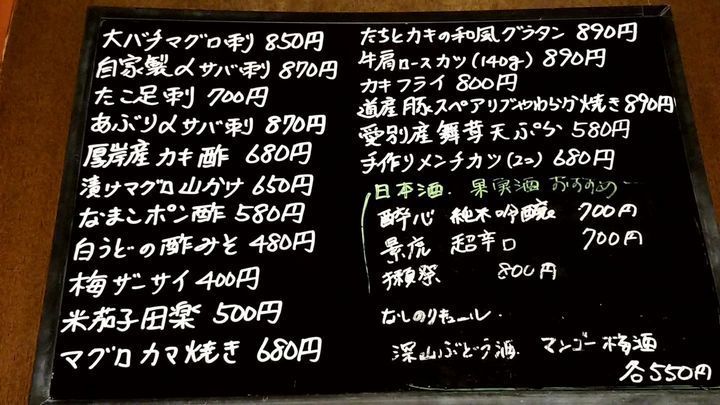 大バチマグロ刺 850円
自家製〆サバ刺 870円
たこ足刺 700円
あぶり〆サバ刺 870円
厚岸産カキ酢 680円
漬けマグロ山かけ 650円
なまこポン酢 580円
白うどの酢みそ 480円
梅ザーサイ 400円
米茄子田楽 500円
マグロカマ焼き 680円
たちとカキの和風グラタン 890円
牛肩ロースカツ(140g) 890円
カキフライ 800円
道産豚スペアリブやわらか焼き 890円
愛別産舞茸天ぷら 580円
手作りメンチカツ(2コ) 680円
日本酒. 果実酒 おすすめ
酔心 純米吟醸 700円
景虎 超辛口 700円
獺祭 800円
なしのリキュール.
深山ぶどう酒. マンゴー梅酒
各550円